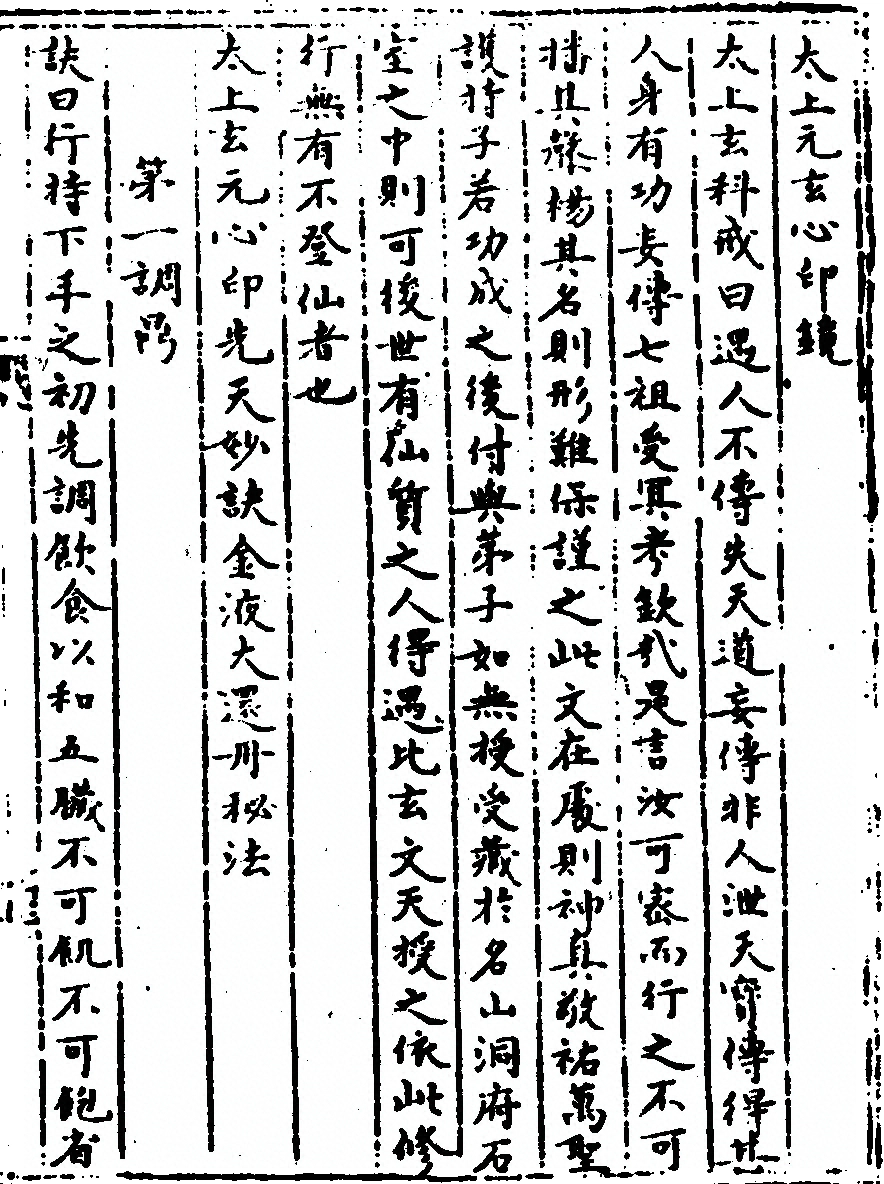 太上元玄心印鏡
太上玄科戒曰遇人不傳失天道妄傳非人泄天寶傳得其
人身有功妄傳七祖受冥考欽哉是言汝可密而行之不可
播其蘂楊其名則形難保謹之此文在處則神真敬祐萬聖
護持子若功成之後付與弟子如無授受藏於名山洞府石
室之中則可後世有仙質之人得遇比玄文天授之依此修
行無有不登仙者也
太上玄元心印先天妙訣金液大還丹秘法
第一調鼎
訣曰行持下手之初先調飲食以和五臟不可飢不可飽省